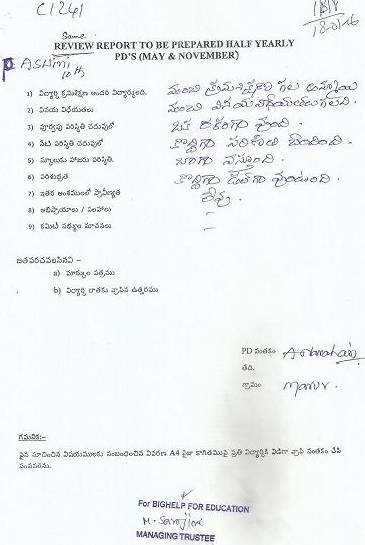 C1241
18-01-16
Same
REVIEW REPORT TO BE PREPARED HALF YEARLY
PD'S (MAY & NOVEMBER)
P ASWini
10th
1) విద్యార్థి క్రమశిక్షణ అందరి విద్యార్థులతో. మంచి క్రమశిక్షణ గల అమ్మాయి
2) వినయ విధేయతలు మంచి వినయవిధేయతలు గలది.
3) పూర్వపు పరిస్థితి చదువులో ఒక రకంగా వుంది.
4) నేటి పరిస్థితి చదువులో కొద్దిగా పరిణతి చెందింది.
5) స్కూలుకు హాజరు పరిస్థితి. బాగా వస్తూంది.
6) పరిశుభ్రత కొద్దిగా నీట్‌గా వుంటుంది.
7) ఇతర అంశములలో ప్రావీణ్యత లేవు.
8) అభిప్రాయాలు / సలహాలు -
9) కమిటీ సభ్యుల సూచనలు -
జతపరచవలసినవి –
a) మార్కుల పత్రము
b) విద్యార్థి దాతకు వ్రాసిన ఉత్తరము
PD సంతకం
తేది.
గ్రామం
గమనిక:-
పైన సూచించిన విషయములకు సంబంధించిన వివరణ A4 సైజు కాగితముపై ప్రతి విద్యార్థికి విడిగా వ్రాసి సంతకం చేసి
పంపవలెను.
For BIGHELP FOR EDUCATION
M. Sarojini
MANAGING TRUSTEE